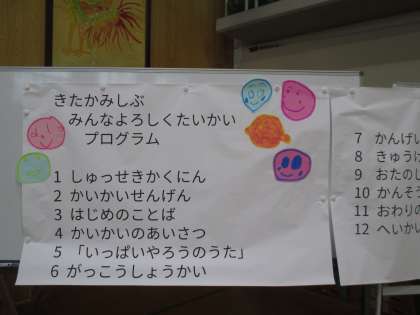 きたかみしぶ
みんなよろしくたいかい
プログラム
1 しゅっせきかくにん
2 かいかいせんげん
3 はじめのことば
4 かいかいのあいさつ
5 「いっぱいやろうのうた」
6 がっこうしょうかい
7 かんげい
8 きゅうけ
9 おたのし
10 かんそう
11 おわりの
12 へいかい